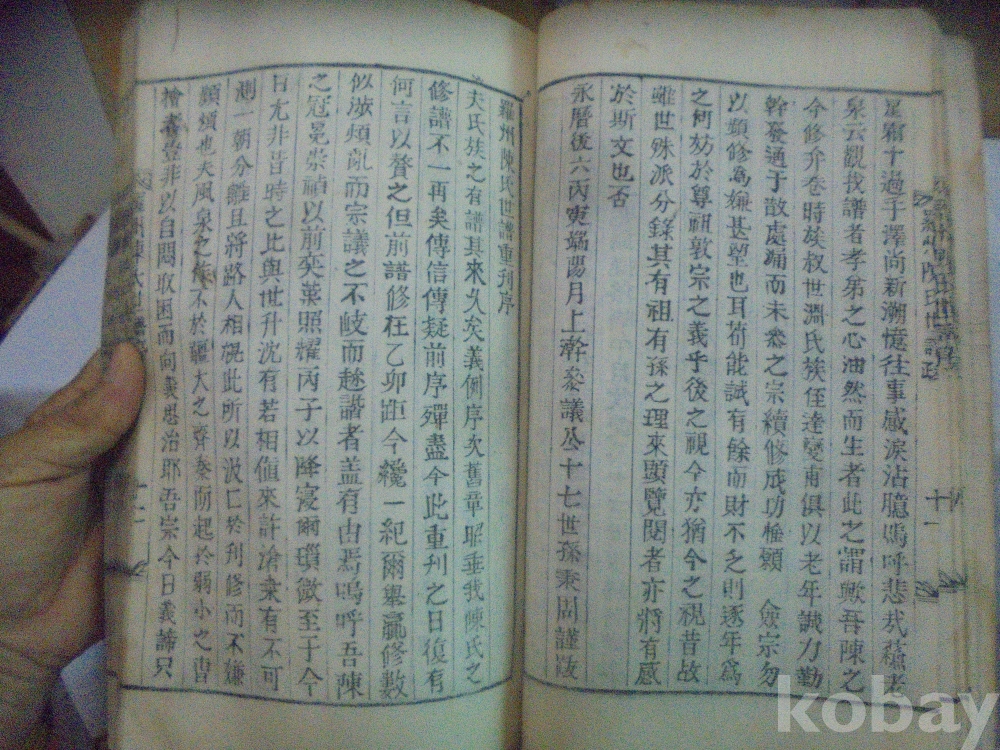 星霜十過手澤尚新潮憶往事感淚沾臆嗚呼悲哉蘇老
泉云觀找譜者孝弟之心油然而生者此之謂歟吾陳之
今修弁卷時族叔世淵氏族侄達燮甫俱以老年誠力勤
幹發通于散處踊而未參之宗續修成功惟願 僉宗勿
以頻修爲嫌甚望也耳苟能誠有餘而財不乏則逐年爲
之何妨於尊祖敦宗之義乎後之視今亦猶今之視昔故
雖世殊派分錄其有祖有孫之理來頭覽閱者亦將有感
於斯文也否
永曆後六丙寅端陽月上澣參議公十七世孫秉周謹跋
羅州陳氏世譜跋
十一
羅州陳氏世譜重刊序
夫氏族之有譜其來久矣義例序次舊章昭垂我陳氏之
修譜不一再矣傳信傳疑前序殫盡今此重刊之日復有
何言以贅之但前譜修在乙卯距今纔一紀爾舉贏修數
似涉煩亂而宗議之不岐而趍諧者盖有由焉嗚呼吾陳
之冠冕崇顯以前奕葉照耀丙子以降寖爾瑣微至于今
日尤非昔時之比與世升沈有若相値來許滄桑有不可
測一朝分離且將路人相視此所以汲仁於刊修而不嫌
頻煩也夫風泉之作不於疆大之齊秦而起於弱小之曹
檜者豈非以自悶取困而向義思治耶吾宗今日義諦只
十二
kobay